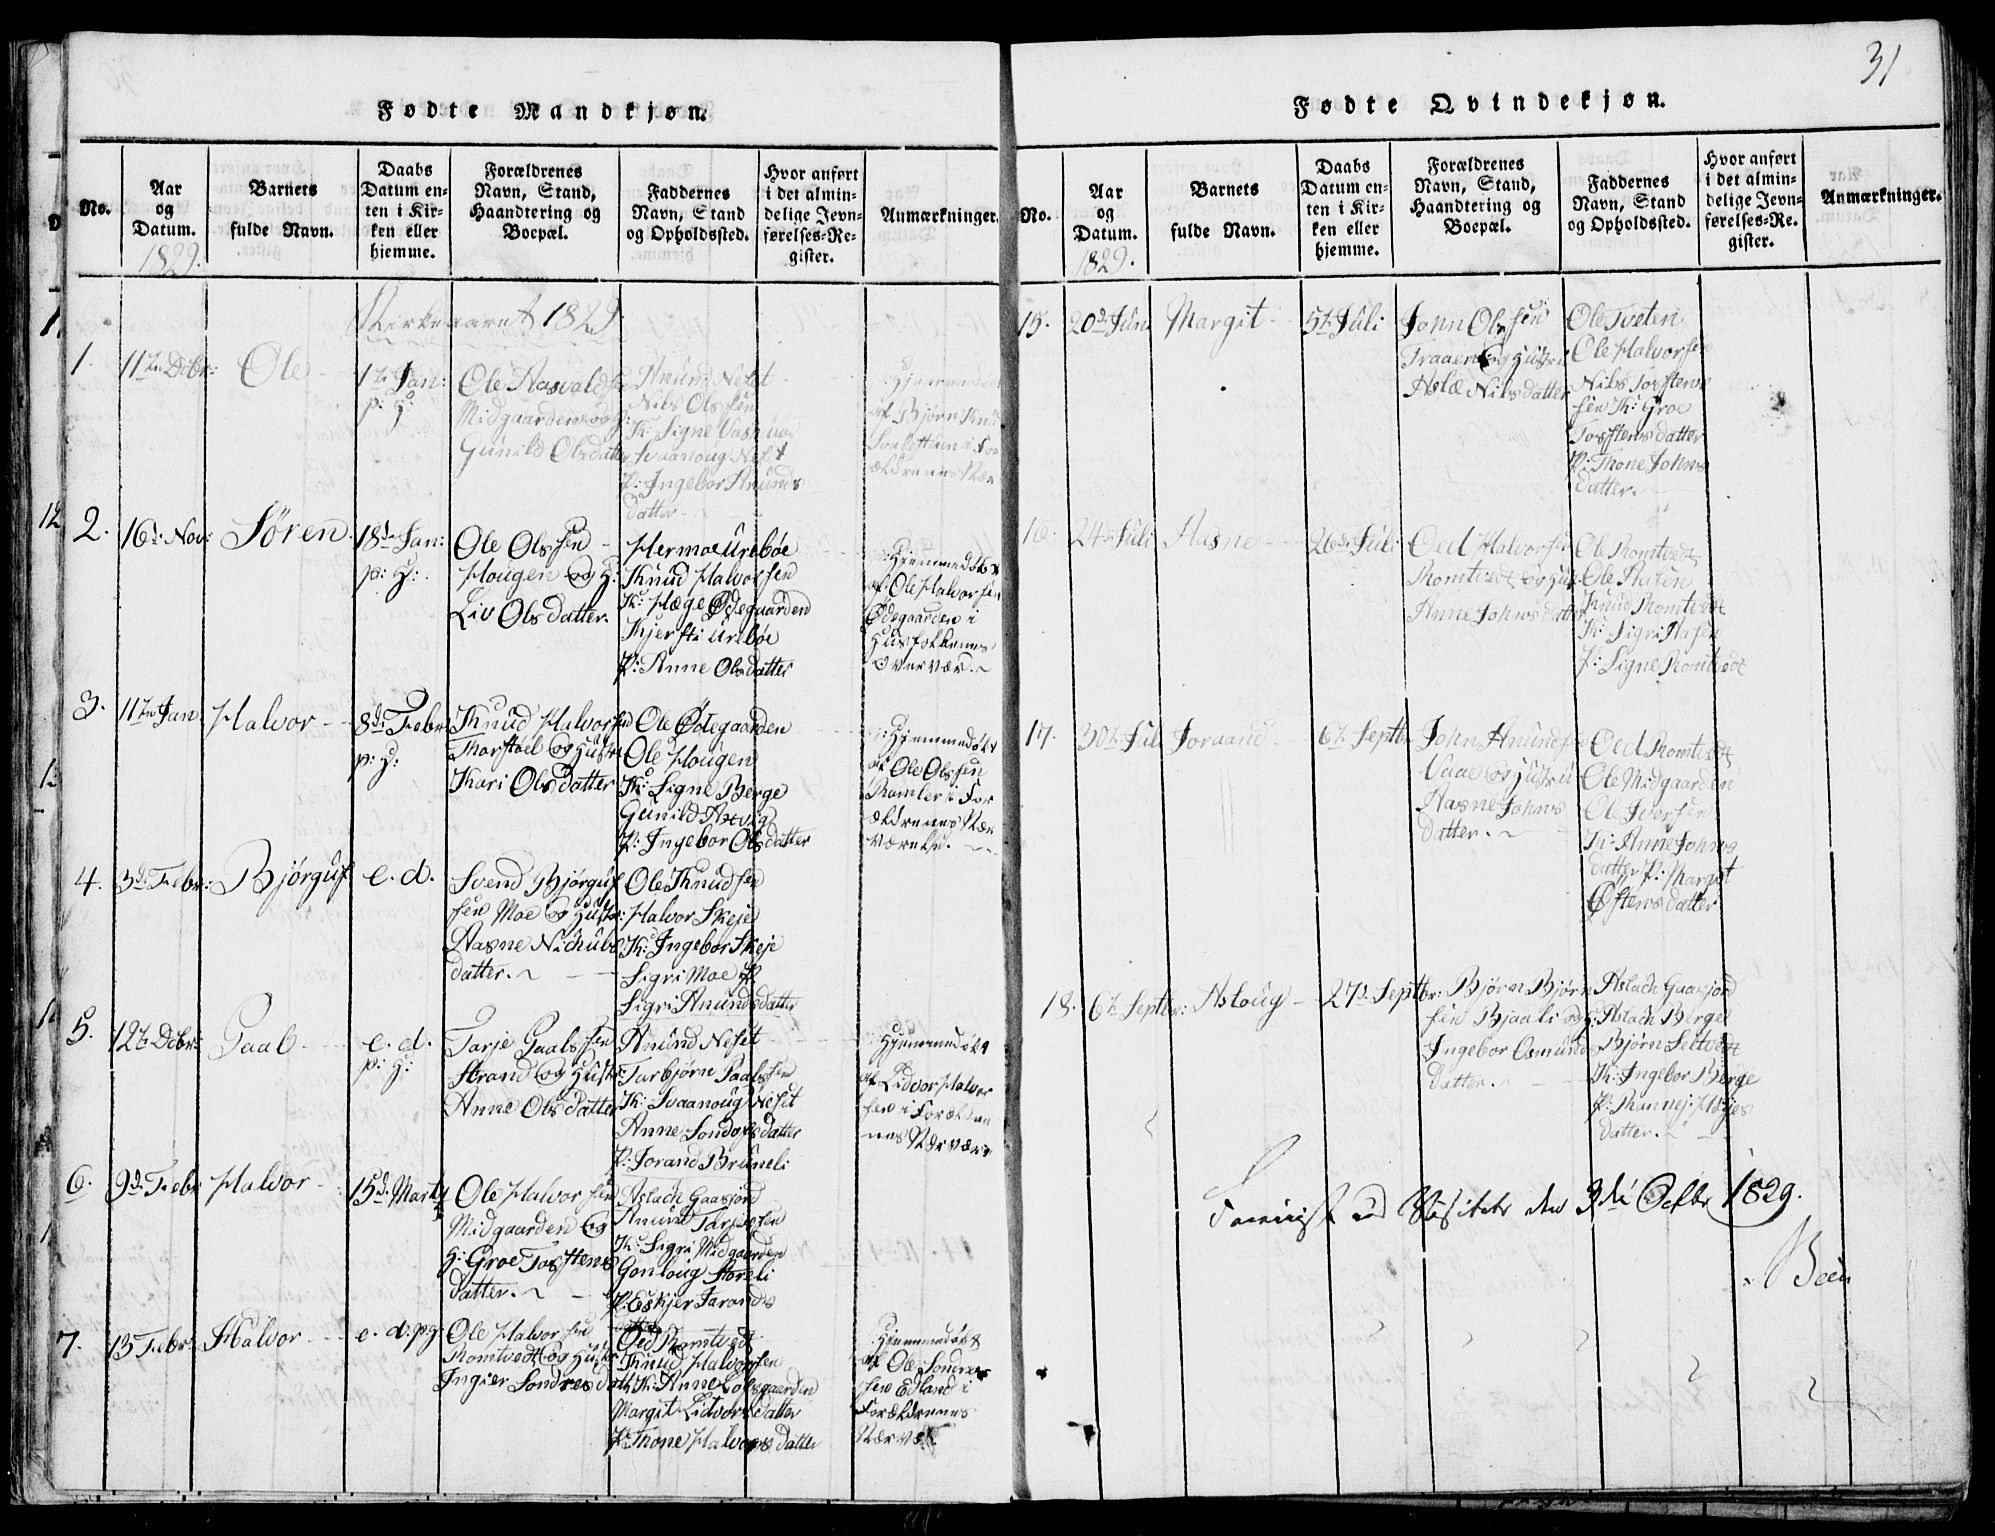 31
Fødte Mandkjøn.
No.
Aar
og
Datum.
1829.
Barnets
fulde Navn.
Daabs
Datum en-
ten i Kir-
ken eller
hjemme.
Forældrenes
Navn, Stand,
Haandtering og
Boepæl.
Faddernes
Navn, Stand
og Opholdssted.
Hvor anført
i det almin-
delige Jevn-
førelses-Re-
gister.
Anmærkninger.
Kirkeaaret 1829
1. 11te Dcbr: Ole
1te Jan:
p: H:
Ole Aasvaldsen
Midgaarden og H:
Gunild Olsdatter
Anund Neset
Nils Olssen
K: Signe
Svaanoug Neset
P: Ingebor Anunds
datter
Hjemmedøbt
af Bjørn Knu
i For
ældrenes Nær
2. 16de Nov: Søren
18de Jan:
p: H:
Ole Olssen
Hougen og H:
Liv Olsdatter.
Hermoe Urebøe
Knud Halvorsen
K: Hæge Ødegaarden
Kjersti Urebøe
P: Anne Olsdatter
Hjemmedøbt
af Ole Halvorsen
Ødegaarden i
Husfolkenes
Overvær.
3. 11te Jan: Halvor
8de Febr
p: H:
Knud Halvorsen
Tharstoel og Hustru
Kari Olsdatter
Ole Ødegaarden
Ole Hougen
K: Signe Berge
Gunild
P: Ingebor Olsdatter
Hjemmedøbt
af Ole Olssen
i For
ældrenes Nær
værelse.
4. 3de Febr: Bjørguf
e. d.
Svend Bjørguf
sen Moe og Hustr:
Aasne Nichuls
datter.
Ole Knudsen
Halvor Skeje
K: Ingebor Skeje
Sigri Moe P:
Sigri Anundsdatter
5. 12te Dcbr: Paal
e. d.
p: H:
Tarje Paalssen
Strand og Hustr:
Anne Olsdatter
Anund Neset
Tarbjørn Paalssen
K: Svaanoug Neset
Anne Sondresdatter
P: Jorand Bruneli
Hjemmedøbt
af Lidvor Halvor
sen i Forældre
nes Nærvær
6. 9de Febr Halvor
15de Marty
Ole Halvorsen
Midgaarden og
H: Groe Tostens
datter.
Aslach Gaasjord
Anund Tarjessen
K: Sigri Midgaarden
Gonloug Storeli
P: Eskjer Tarands
datter
7. 13 Febr: Halvor
e. d: p: H:
Ole Halvorsen
Romtvedt og Hustr
Ingier Sondresdatt
Oed Romtvedt
Knud Halvorsen
K: Anne Lofsgaarden
Margit Lidvorsdatter
P: Thone Halvorsdatter
Hjemmedøbt
af Ole Sondres
sen Edland i
Forældrenes
Nærvær
Fødte Qvindekjøn.
No.
Aar
og
Datum.
1829.
Barnets
fulde Navn.
Daabs
Datum en-
ten i Kir-
ken eller
hjemme.
Forældrenes
Navn, Stand,
Haandtering og
Boepæl.
Faddernes
Navn, Stand
og Opholdssted.
Hvor anført
i det almin-
delige Jevn-
førelses-Re-
gister.
Anmærkninger.
15. 20de Juni Margit
5te Juli
John Olssen
Traaen og Hustru
Aslæ Nilsdatter
Ole Tveten
Ole Halvorsen
Nils Tostens
sen K: Groe
Tostensdatter
P: Thone Johns
datter.
16. 24de Juli Aasne
26de Juli
Oed Halvorsen
Romtvedt og Hust
Anne Johnsdatter
Ole Romtvedt
Ole Aasen
Knud Romtvedt
K: Sigri Aasen
P: Signe Romtvedt
17. 30te Juli Joraand
6te Septbr
John Anunds
Vaae og Hustru
Aasne Johns
datter.
Oed Romtvedt
Ole Midgaarden
Ole Iversen
K: Anne Johns
datter P: Margit
Østensdatter
18. 6te Septbr: Asloug
27de Septbr:
Bjørn Bjørn
sen Bjaali og H:
Ingebor Osmunds
datter.
Aslach Gaasjord
Aslach Berge
Bjørn Seltvedt
K: Ingebor Berge
P:
datter.
Visitats den 3die Octbr 1829.